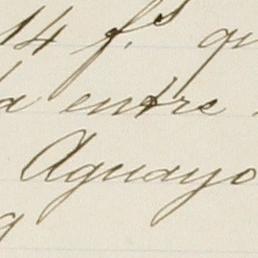 14 f.s qu
a entre
Aguayo